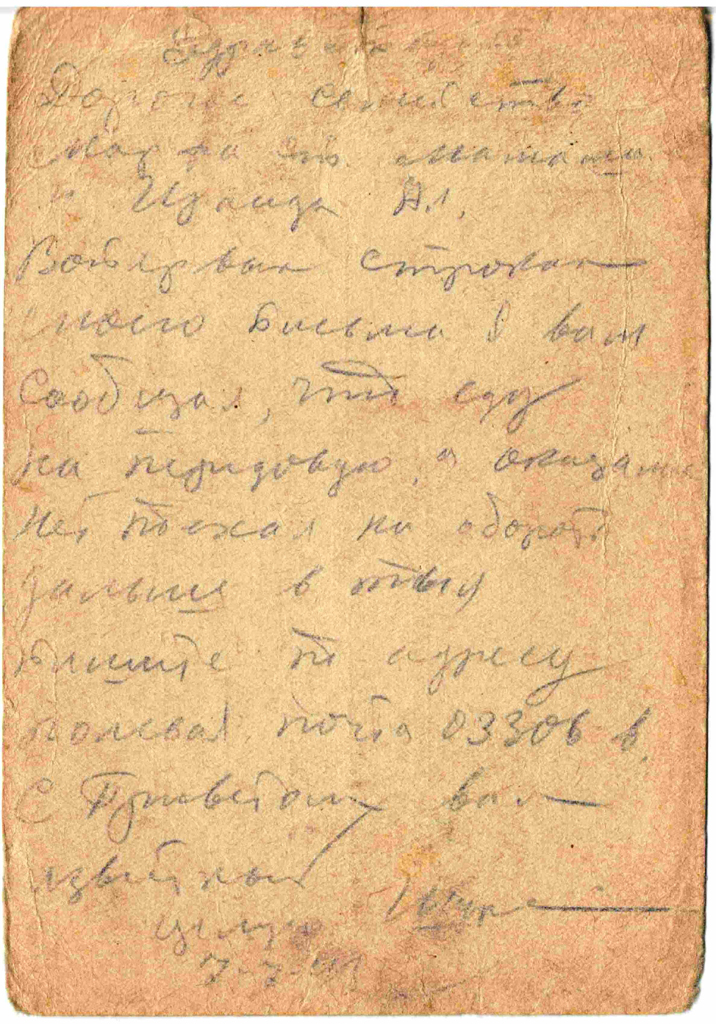 Здравствуйте
Дорогое семейство
Марфа Ив. Мамаша
и Ираида Ал.
Воперьвых строках
своего письма я вам
сообщал, что еду
на передовую, а оказалос
нет поехал на оборот
дальше в тыл
пишите по адресу
полевая почта 03306 в.
С Приветом вам
известный
целую Шура